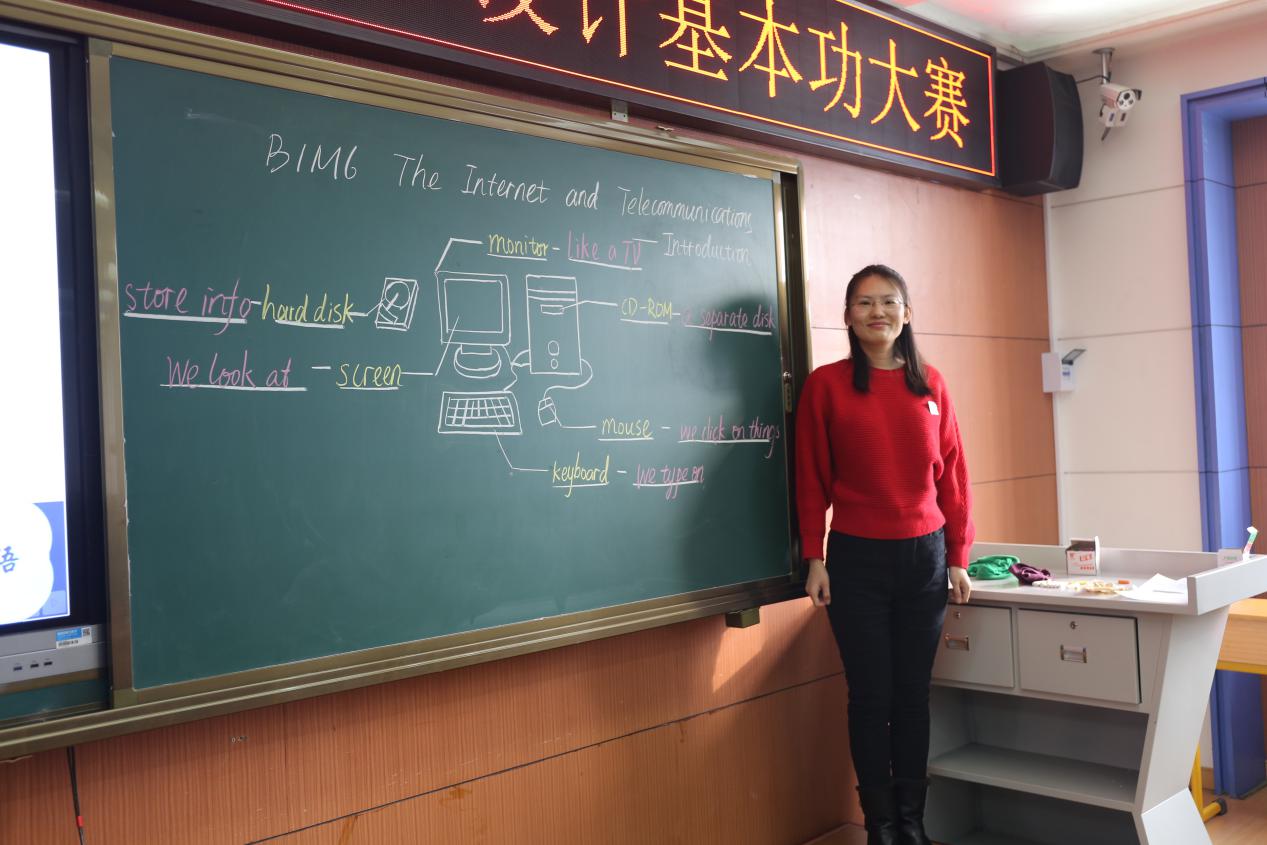 设计基本功大赛
B1M6 The Internet and Telecommunications
— Introduction
monitor - like a TV
store info - hard disk
CD-ROM - a separate disk
We look at - screen
mouse - we click on things
keyboard - we type on
语